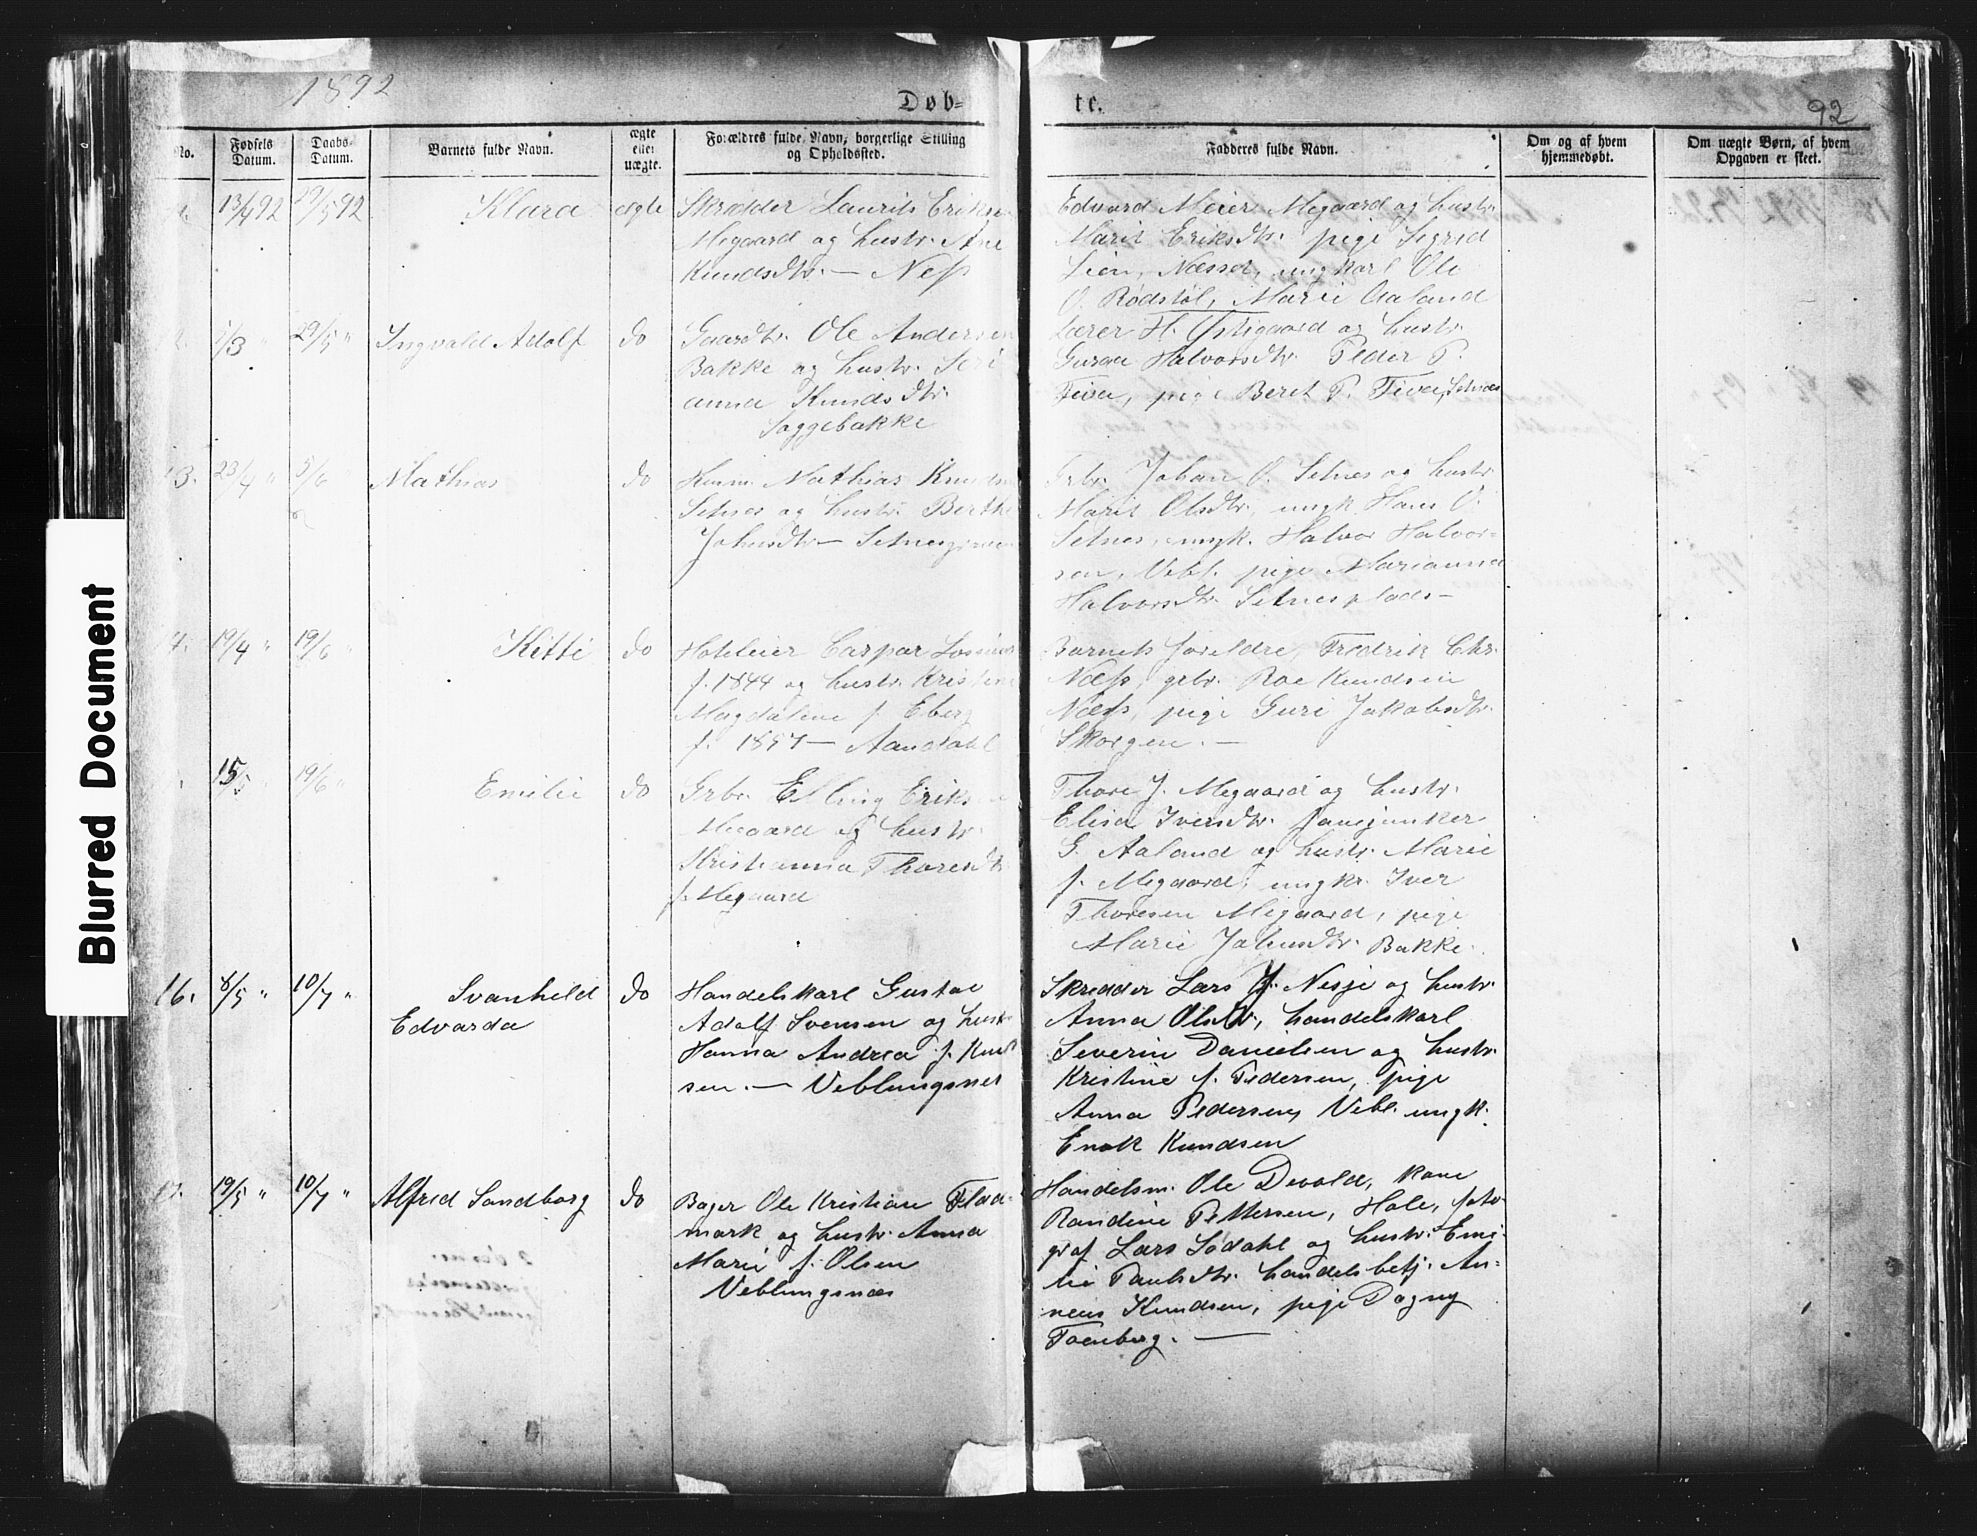 1892
Døb=
te.
92
No.
Fødsels Datum.
Daabs- Datum.
Barnets fulde Navn.
ægte eller uægte.
Forældres fulde Navn, borgerlige Stilling og Opholdssted.
Fadderes fulde Navn.
Om og af hvem hjemmedøbt.
Om uægte Børn, af hvem Opgaven er skeet.
13/4 92
29/5 92
Klara
ægte
Skrædder Laurits Eriks
Megaard og hustr. Ane
Knudsdtr. — Nesς
Edvard Meier Megaard og hustr.
Marit Eriksdtr. pige Sigrid
Lien, Næsset, ungkarl Ole
O. Rødstøl, Marie Aaland
1/3 "
29/5 "
Ingvald Adolf
do
Gaardbr. Ole Anders
Bakke og hustr. Seri
anna Knudsdtr.
Soggebakke
Lærer H. Østigaard og hustr.
Guroe Halvorsdtr. Peder P.
Fiva, pige Beret P. Fiva, Setnes
13.
23/4 "
5/6 "
Mathias
do
Husm. Mathias Knuds
Setnes og hustr. Berthe
Johnsdtr —
Grbr. Johan O. Setnes og hustr.
Marit Olsdtr. ungk. Hans O.
Setnes, ungk. Halvor Halvor-
sen, Vebl. pige Marianna
Halvorsdtr. Setnesplads —
14.
19/4 "
19/6 "
Kitti
do
Hoteleier Caspar
f. 1844 og hustr. Kristine
Magdalene f. Eberg
f. — Aandahl
Barnets foreldre, Fredrik Chr.
Næss, grbr. Roe Knudsen
Næss, pige Guri Jakobsdtr.
Skorgen. —
15/5 "
19/6 "
Emilie
do
Grbr. Elling Eriks
Megaard og hustr.
Kristianna Thoresdtr
f. Megaard
Thore J. Megaard og hustr.
Elisa Iversdtr.
G. Aaland og hustr. Marie
f. Megaard, ungkr. Iver
Thoresen Megaard, pige
Marie Johnsdtr. Bakke.
16.
8/5 "
10/7 "
Svanheld
Edvarda
do
Handelskarl Gustav
Adolf Svensen og hustr
Hanna Andrea f. Knud
sen. — Veblungsnes
Skredder Lars J. Nesje og hustr.
Anna Olsdtr, handelskarl
Severin Danielsen og hustr.
Kristine f. Pedersen, pige
Anna Pedersen, Vebl. ungk.
Enok Knudsen
17.
19/5 "
10/7 "
Alfred Sandborg
do
Bager Ole Kristian Flad-
mark og hustr. Anna
Marie f. Olsen
Veblungsnæs
Handelsm. Ole Devold, kone
Randine Pettersen, Hole, foto-
graf Lars Sødahl og hustr. Emi-
lie Paulsdtr. handelsbetj. An=
neus Knudsen, pige Dagny
Toenberg. —
Blurred Document